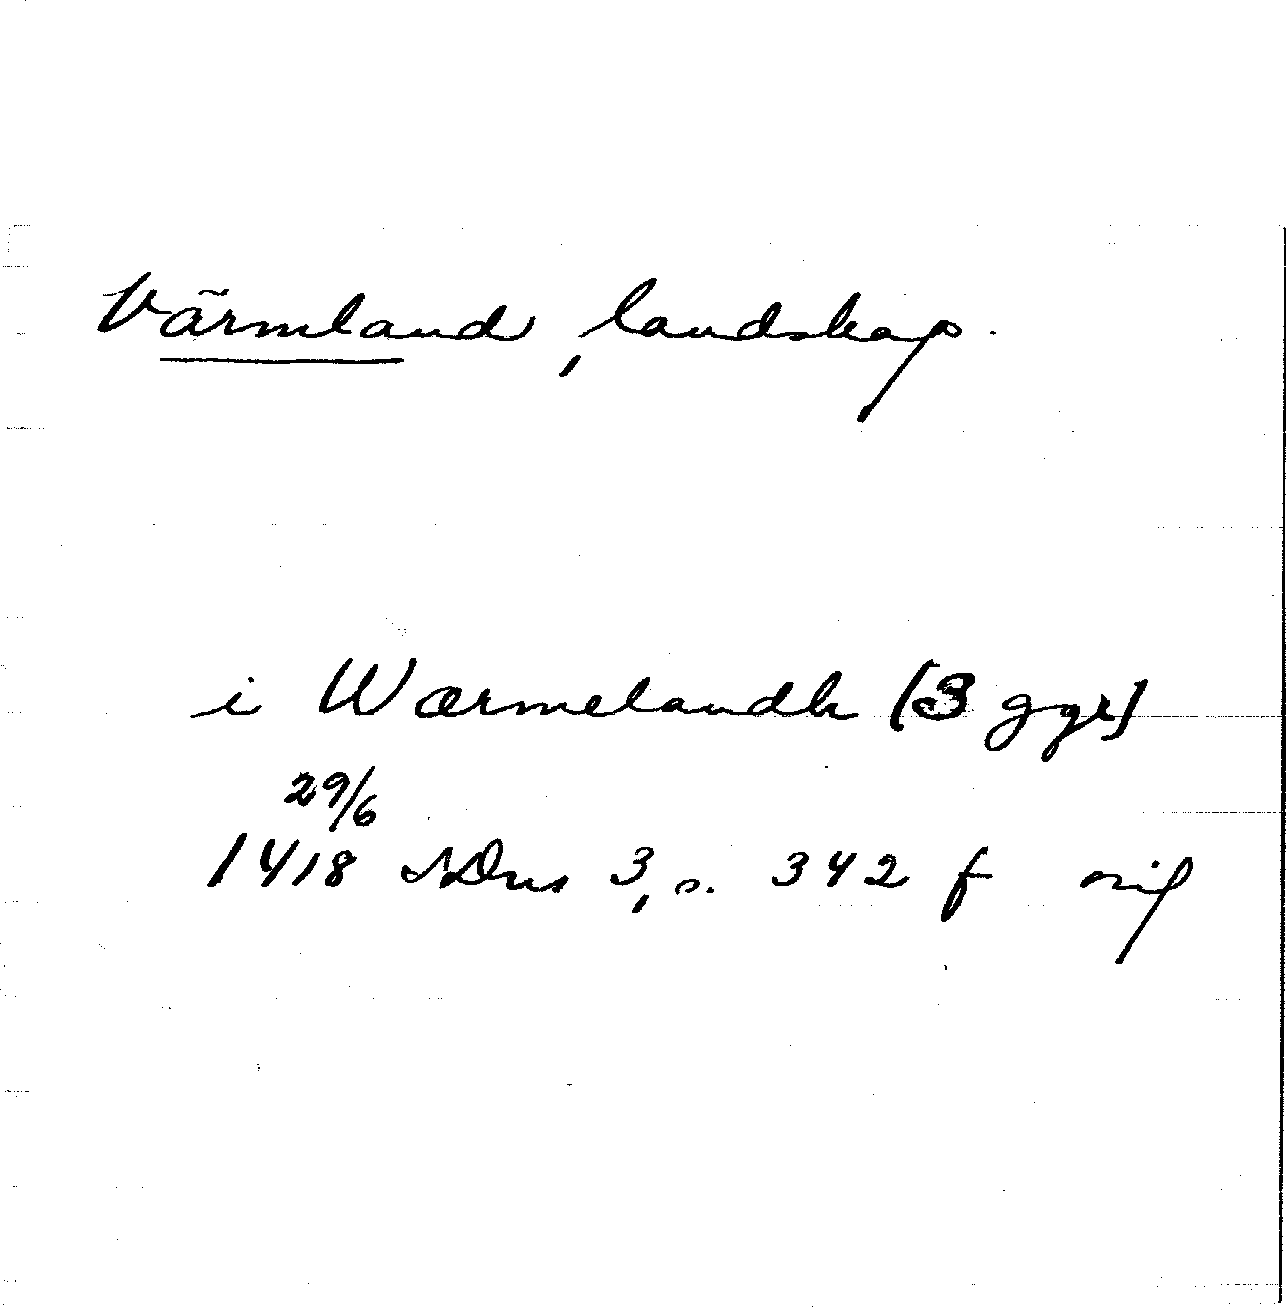 Värmland, landskap.
i Wærmelandh (3 ggr)
29/6
1418 SDns 3, s. 342 f orig